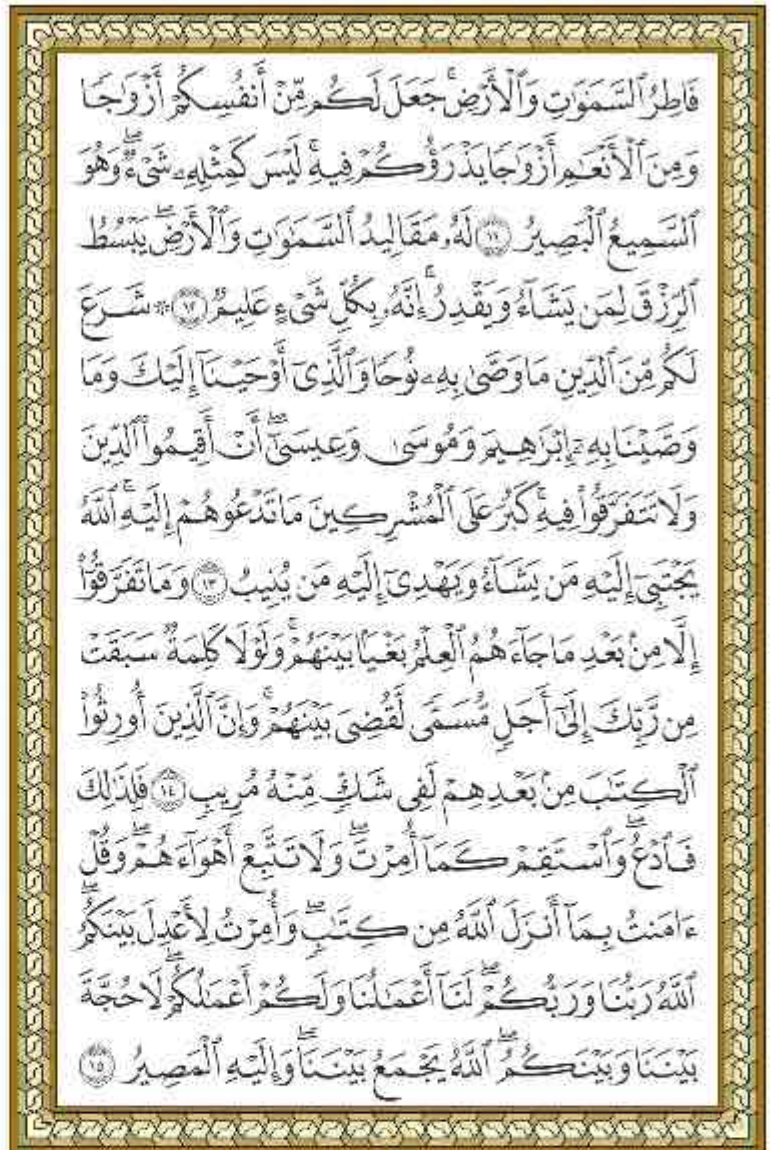 فَاطِرُ ٱلسَّمَٰوَٰتِ وَٱلْأَرْضِ ۚ جَعَلَ لَكُم مِّنْ أَنفُسِكُمْ أَزْوَٰجًا
وَمِنَ ٱلْأَنْعَٰمِ أَزْوَٰجًا يَذْرَؤُكُمْ فِيهِ ۚ لَيْسَ كَمِثْلِهِۦ شَىْءٌ ۖ وَهُوَ
ٱلسَّمِيعُ ٱلْبَصِيرُ ۝١١ لَهُۥ مَقَالِيدُ ٱلسَّمَٰوَٰتِ وَٱلْأَرْضِ ۖ يَبْسُطُ
ٱلرِّزْقَ لِمَن يَشَآءُ وَيَقْدِرُ ۚ إِنَّهُۥ بِكُلِّ شَىْءٍ عَلِيمٌ ۝١٢ ۞ شَرَعَ
لَكُم مِّنَ ٱلدِّينِ مَا وَصَّىٰ بِهِۦ نُوحًا وَٱلَّذِىٓ أَوْحَيْنَآ إِلَيْكَ وَمَا
وَصَّيْنَا بِهِۦٓ إِبْرَٰهِيمَ وَمُوسَىٰ وَعِيسَىٰٓ ۖ أَنْ أَقِيمُوا۟ ٱلدِّينَ
وَلَا تَتَفَرَّقُوا۟ فِيهِ ۚ كَبُرَ عَلَى ٱلْمُشْرِكِينَ مَا تَدْعُوهُمْ إِلَيْهِ ۚ ٱللَّهُ
يَجْتَبِىٓ إِلَيْهِ مَن يَشَآءُ وَيَهْدِىٓ إِلَيْهِ مَن يُنِيبُ ۝١٣ وَمَا تَفَرَّقُوٓا۟
إِلَّا مِنۢ بَعْدِ مَا جَآءَهُمُ ٱلْعِلْمُ بَغْيًۢا بَيْنَهُمْ ۚ وَلَوْلَا كَلِمَةٌ سَبَقَتْ
مِن رَّبِّكَ إِلَىٰٓ أَجَلٍ مُّسَمًّى لَّقُضِىَ بَيْنَهُمْ ۚ وَإِنَّ ٱلَّذِينَ أُورِثُوا۟
ٱلْكِتَٰبَ مِنۢ بَعْدِهِمْ لَفِى شَكٍّ مِّنْهُ مُرِيبٍ ۝١٤ فَلِذَٰلِكَ
فَٱدْعُ ۖ وَٱسْتَقِمْ كَمَآ أُمِرْتَ ۖ وَلَا تَتَّبِعْ أَهْوَآءَهُمْ ۖ وَقُلْ
ءَامَنتُ بِمَآ أَنزَلَ ٱللَّهُ مِن كِتَٰبٍ ۖ وَأُمِرْتُ لِأَعْدِلَ بَيْنَكُمُ ۖ
ٱللَّهُ رَبُّنَا وَرَبُّكُمْ ۖ لَنَآ أَعْمَٰلُنَا وَلَكُمْ أَعْمَٰلُكُمْ ۖ لَا حُجَّةَ
بَيْنَنَا وَبَيْنَكُمُ ۖ ٱللَّهُ يَجْمَعُ بَيْنَنَا ۖ وَإِلَيْهِ ٱلْمَصِيرُ ۝١٥